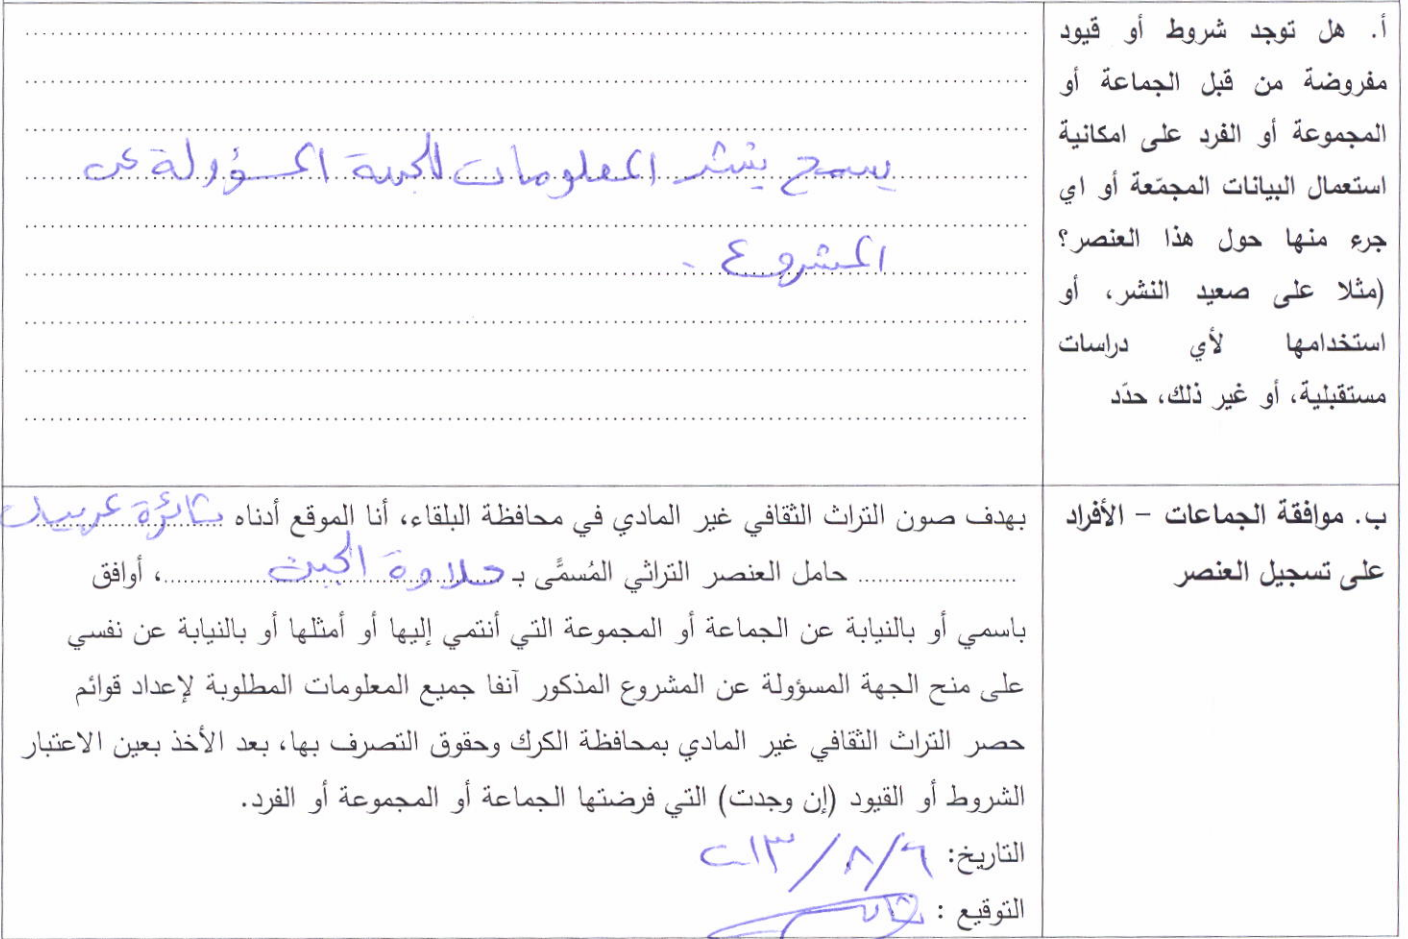 أ. هل توجد شروط أو قيود
مفروضة من قبل الجماعة أو
المجموعة أو الفرد على امكانية
استعمال البيانات المجمّعة أو اي
جرء منها حول هذا العنصر؟
(مثلا على صعيد النشر، أو
استخدامها لأي دراسات
مستقبلية، أو غير ذلك، حدّد
يسمح بنشر المعلومات للجهة المسؤولة عن
المشروع .
ب. موافقة الجماعات – الأفراد
على تسجيل العنصر
بهدف صون التراث الثقافي غير المادي في محافظة البلقاء، أنا الموقع أدناه ثائرة عربيات
حامل العنصر التراثي المُسمًّى بـ حلاوة الجبن، أوافق
باسمي أو بالنيابة عن الجماعة أو المجموعة التي أنتمي إليها أو أمثلها أو بالنيابة عن نفسي
على منح الجهة المسؤولة عن المشروع المذكور آنفا جميع المعلومات المطلوبة لإعداد قوائم
حصر التراث الثقافي غير المادي بمحافظة الكرك وحقوق التصرف بها، بعد الأخذ بعين الاعتبار
الشروط أو القيود (إن وجدت) التي فرضتها الجماعة أو المجموعة أو الفرد.
التاريخ: ٦/٨/
التوقيع :